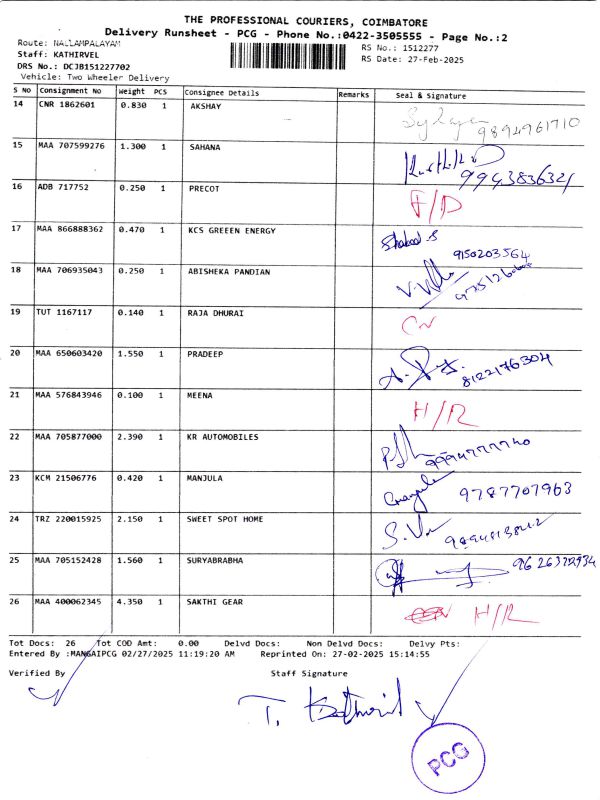 THE PROFESSIONAL COURIERS, COIMBATORE
Delivery Runsheet - PCG - Phone No.:0422-3505555 - Page No.:2
Route: NALLAMPALAYAM
Staff: KATHIRVEL
DRS No.: DCJB151227702
Vehicle: Two Wheeler Delivery
RS No.: 1512277
RS Date: 27-Feb-2025
S No Consignment No Weight PCS Consignee Details Remarks Seal & Signature
14 CNR 1862601 0.830 1 AKSHAY 9894961710
15 MAA 707599276 1.300 1 SAHANA 9943836321
16 ADB 717752 0.250 1 PRECOT F/D
17 MAA 866888362 0.470 1 KCS GREEEN ENERGY 9150203564
18 MAA 706935043 0.250 1 ABISHEKA PANDIAN
19 TUT 1167117 0.140 1 RAJA DHURAI
20 MAA 650603420 1.550 1 PRADEEP 8122176304
21 MAA 576843946 0.100 1 MEENA H/R
22 MAA 705877000 2.390 1 KR AUTOMOBILES
23 KCM 21506776 0.420 1 MANJULA 9787707963
24 TRZ 220015925 2.150 1 SWEET SPOT HOME
25 MAA 705152428 1.560 1 SURYABRABHA
26 MAA 400062345 4.350 1 SAKTHI GEAR H/R
Tot Docs: 26 Tot COD Amt: 0.00 Delvd Docs: Non Delvd Docs: Delvy Pts:
Entered By :MANGAIPCG 02/27/2025 11:19:20 AM Reprinted On: 27-02-2025 15:14:55
Verified By Staff Signature
PCG